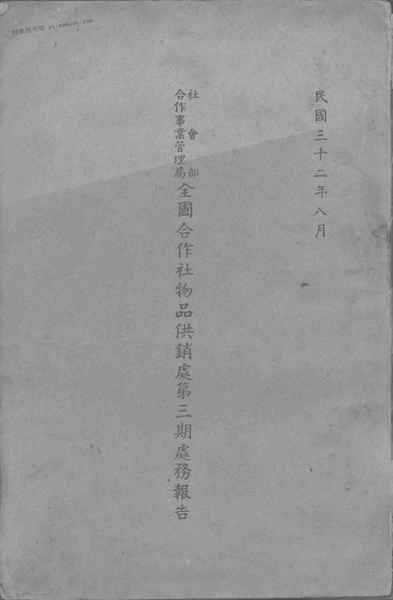 民國三十二年八月
社會部
合作事業管理局
全國合作社物品供銷處第三期處務報告